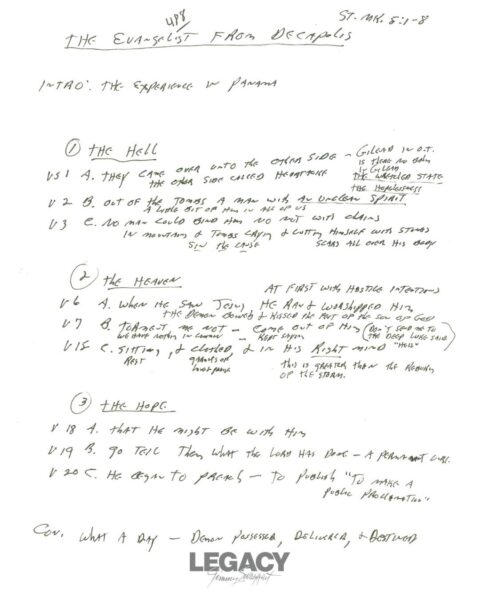 498
ST. MK. 5:1-8
THE EVANGELIST FROM DECAPOLIS
INTRO: THE EXPERIENCE IN PANAMA
① THE HELL
VS 1 A. THEY CAME OVER UNTO THE OTHER SIDE - GILEAD IN O.T.
THE OTHER SIDE CALLED
IS THERE NO BALM
IN GILEAD
THE WRETCHED STATE
THE HOPELESSNESS
V 2 B. OUT OF THE TOMBS A MAN WITH AN UNCLEAN SPIRIT
A LITTLE BIT OF HIM IN ALL OF US
V 3 C. NO MAN COULD BIND HIM NO NOT WITH CHAINS
IN MOUNTAINS & TOMBS CRYING & CUTTING HIMSELF WITH STONES
SIN THE CAUSE
SCARS ALL OVER HIS BODY
② THE HEAVEN
AT FIRST WITH HOSTILE INTENTIONS
V 6 A. WHEN HE SAW JESUS HE RAN & WORSHIPPED HIM
THE DEMON BOWED & KISSED THE FEET OF THE SON OF GOD
V 7 B. TORMENT ME NOT - COME OUT OF HIM (DON'T SEND ME TO
THE DEEP LUKE SAID
"HELL"
WE HAVE NOTHING IN COMMON - KEPT SAYING
V 15 C. SITTING, & CLOTHED & IN HIS RIGHT MIND
REST
GARMENTS OF
THIS IS GREATER THAN THE
OF THE STORM.
③ THE HOPE
V 18 A. THAT HE MIGHT BE WITH HIM
V 19 B. GO TELL THEM WHAT THE LORD HAS DONE - A PERMANENT CURE.
V 20 C. HE BEGAN TO PREACH - TO PUBLISH "TO MAKE A
PUBLIC PROCLAMATION"
CON. WHAT A DAY - DEMON POSSESSED, DELIVERED, &
LEGACY
Jimmy Swaggart